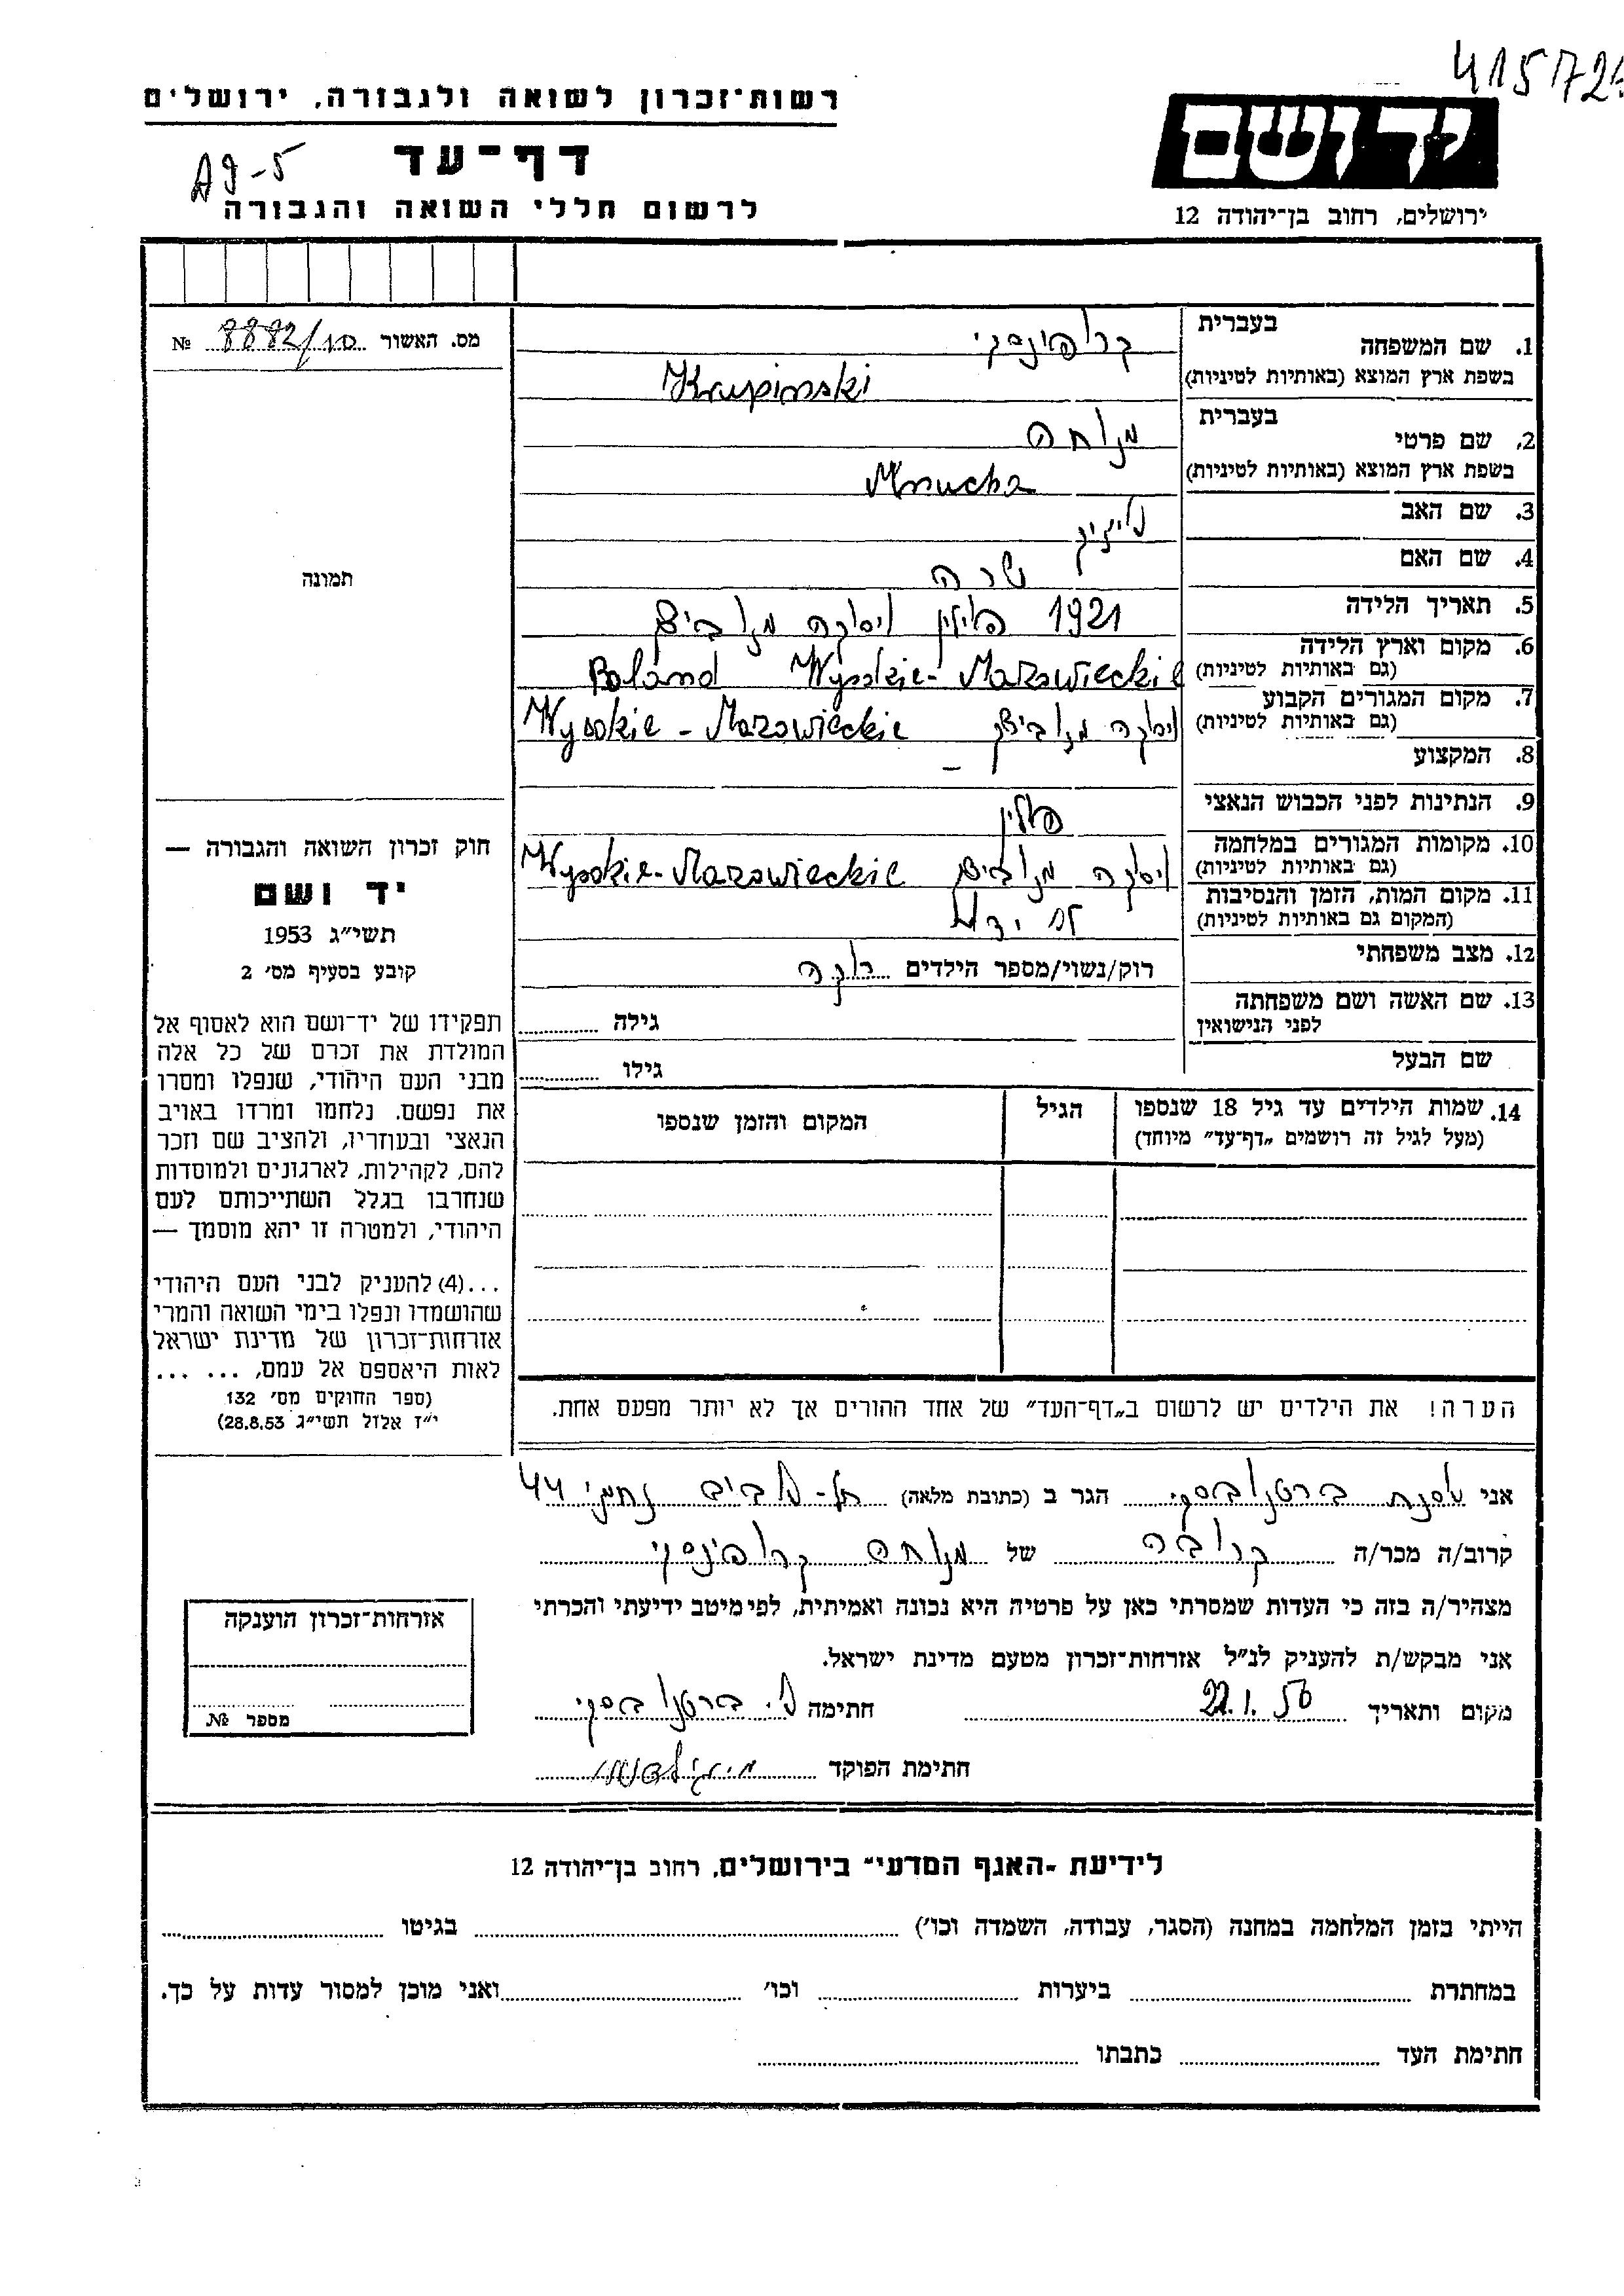 415721
רשות־זכרון לשואה ולגבורה, ירושלים
יד ושם
דף־עד
A9-5
לרשום חללי השואה והגבורה
ירושלים, רחוב בן־יהודה 12
מס. האשור 8882/10 №
1. שם המשפחה בעברית קרופינסקי
בשפת ארץ המוצא (באותיות לטיניות) Krupinski
2. שם פרטי בעברית מנוחה
בשפת ארץ המוצא (באותיות לטיניות) Mnucha
3. שם האב
4. שם האם שרה
5. תאריך הלידה 1921 פולין
6. מקום וארץ הלידה
(גם באותיות לטיניות) Poland Wysokie-Mazowieckie
7. מקום המגורים הקבוע
(גם באותיות לטיניות) Wysokie-Mazowieckie
8. המקצוע –
9. הנתינות לפני הכבוש הנאצי פולין
10. מקומות המגורים במלחמה
(גם באותיות לטיניות) Wysokie-Mazowieckie
11. מקום המות, הזמן והנסיבות
(המקום גם באותיות לטיניות) לא ידוע
12. מצב משפחתי רוק/נשוי/מספר הילדים רוקה
13. שם האשה ושם משפחתה
לפני הנישואין גילה
שם הבעל גילו
14. שמות הילדים עד גיל 18 שנספו הגיל המקום והזמן שנספו
(מעל לגיל זה רושמים „דף־עד״ מיוחד)
הערה! את הילדים יש לרשום ב„דף־העד״ של אחד ההורים אך לא יותר מפעם אחת.
תמונה
חוק זכרון השואה והגבורה —
יד ושם
תשי״ג 1953
קובע בסעיף מס׳ 2
תפקידו של יד־ושם הוא לאסוף אל
המולדת את זכרם של כל אלה
מבני העם היהודי, שנפלו ומסרו
את נפשם. נלחמו ומרדו באויב
הנאצי ובעוזריו, ולהציב שם וזכר
להם, לקהילות, לארגונים ולמוסדות
שנחרבו בגלל השתייכותם לעם
היהודי, ולמטרה זו יהא מוסמך —
...(4) להעניק לבני העם היהודי
שהושמדו ונפלו בימי השואה והמרי
אזרחות־זכרון של מדינת ישראל
לאות היאספם אל עמם, ... ...
(ספר החוקים מס׳ 132
י״ז אלול תשי״ג 28.8.53)
אני אסנת ברטנובסקי הגר ב (כתובת מלאה) תל-אביב נחמני 44
קרוב/ה מכר/ה קרובה של מנוחה קרופינסקי
מצהיר/ה בזה כי העדות שמסרתי כאן על פרטיה היא נכונה ואמיתית, לפי מיטב ידיעתי והכרתי
אני מבקש/ת להעניק לנ״ל אזרחות־זכרון מטעם מדינת ישראל.
מקום ותאריך 22.1.56 חתימה א. ברטנובסקי
חתימת הפוקד
אזרחות־זכרון הוענקה
מספר №
לידיעת -האגף המדעי״ בירושלים, רחוב בן־יהודה 12
הייתי בזמן המלחמה במחנה (הסגר, עבודה, השמדה וכו׳) בגיטו
במחתרת ביערות וכו׳ ואני מוכן למסור עדות על כך.
חתימת העד כתבתו